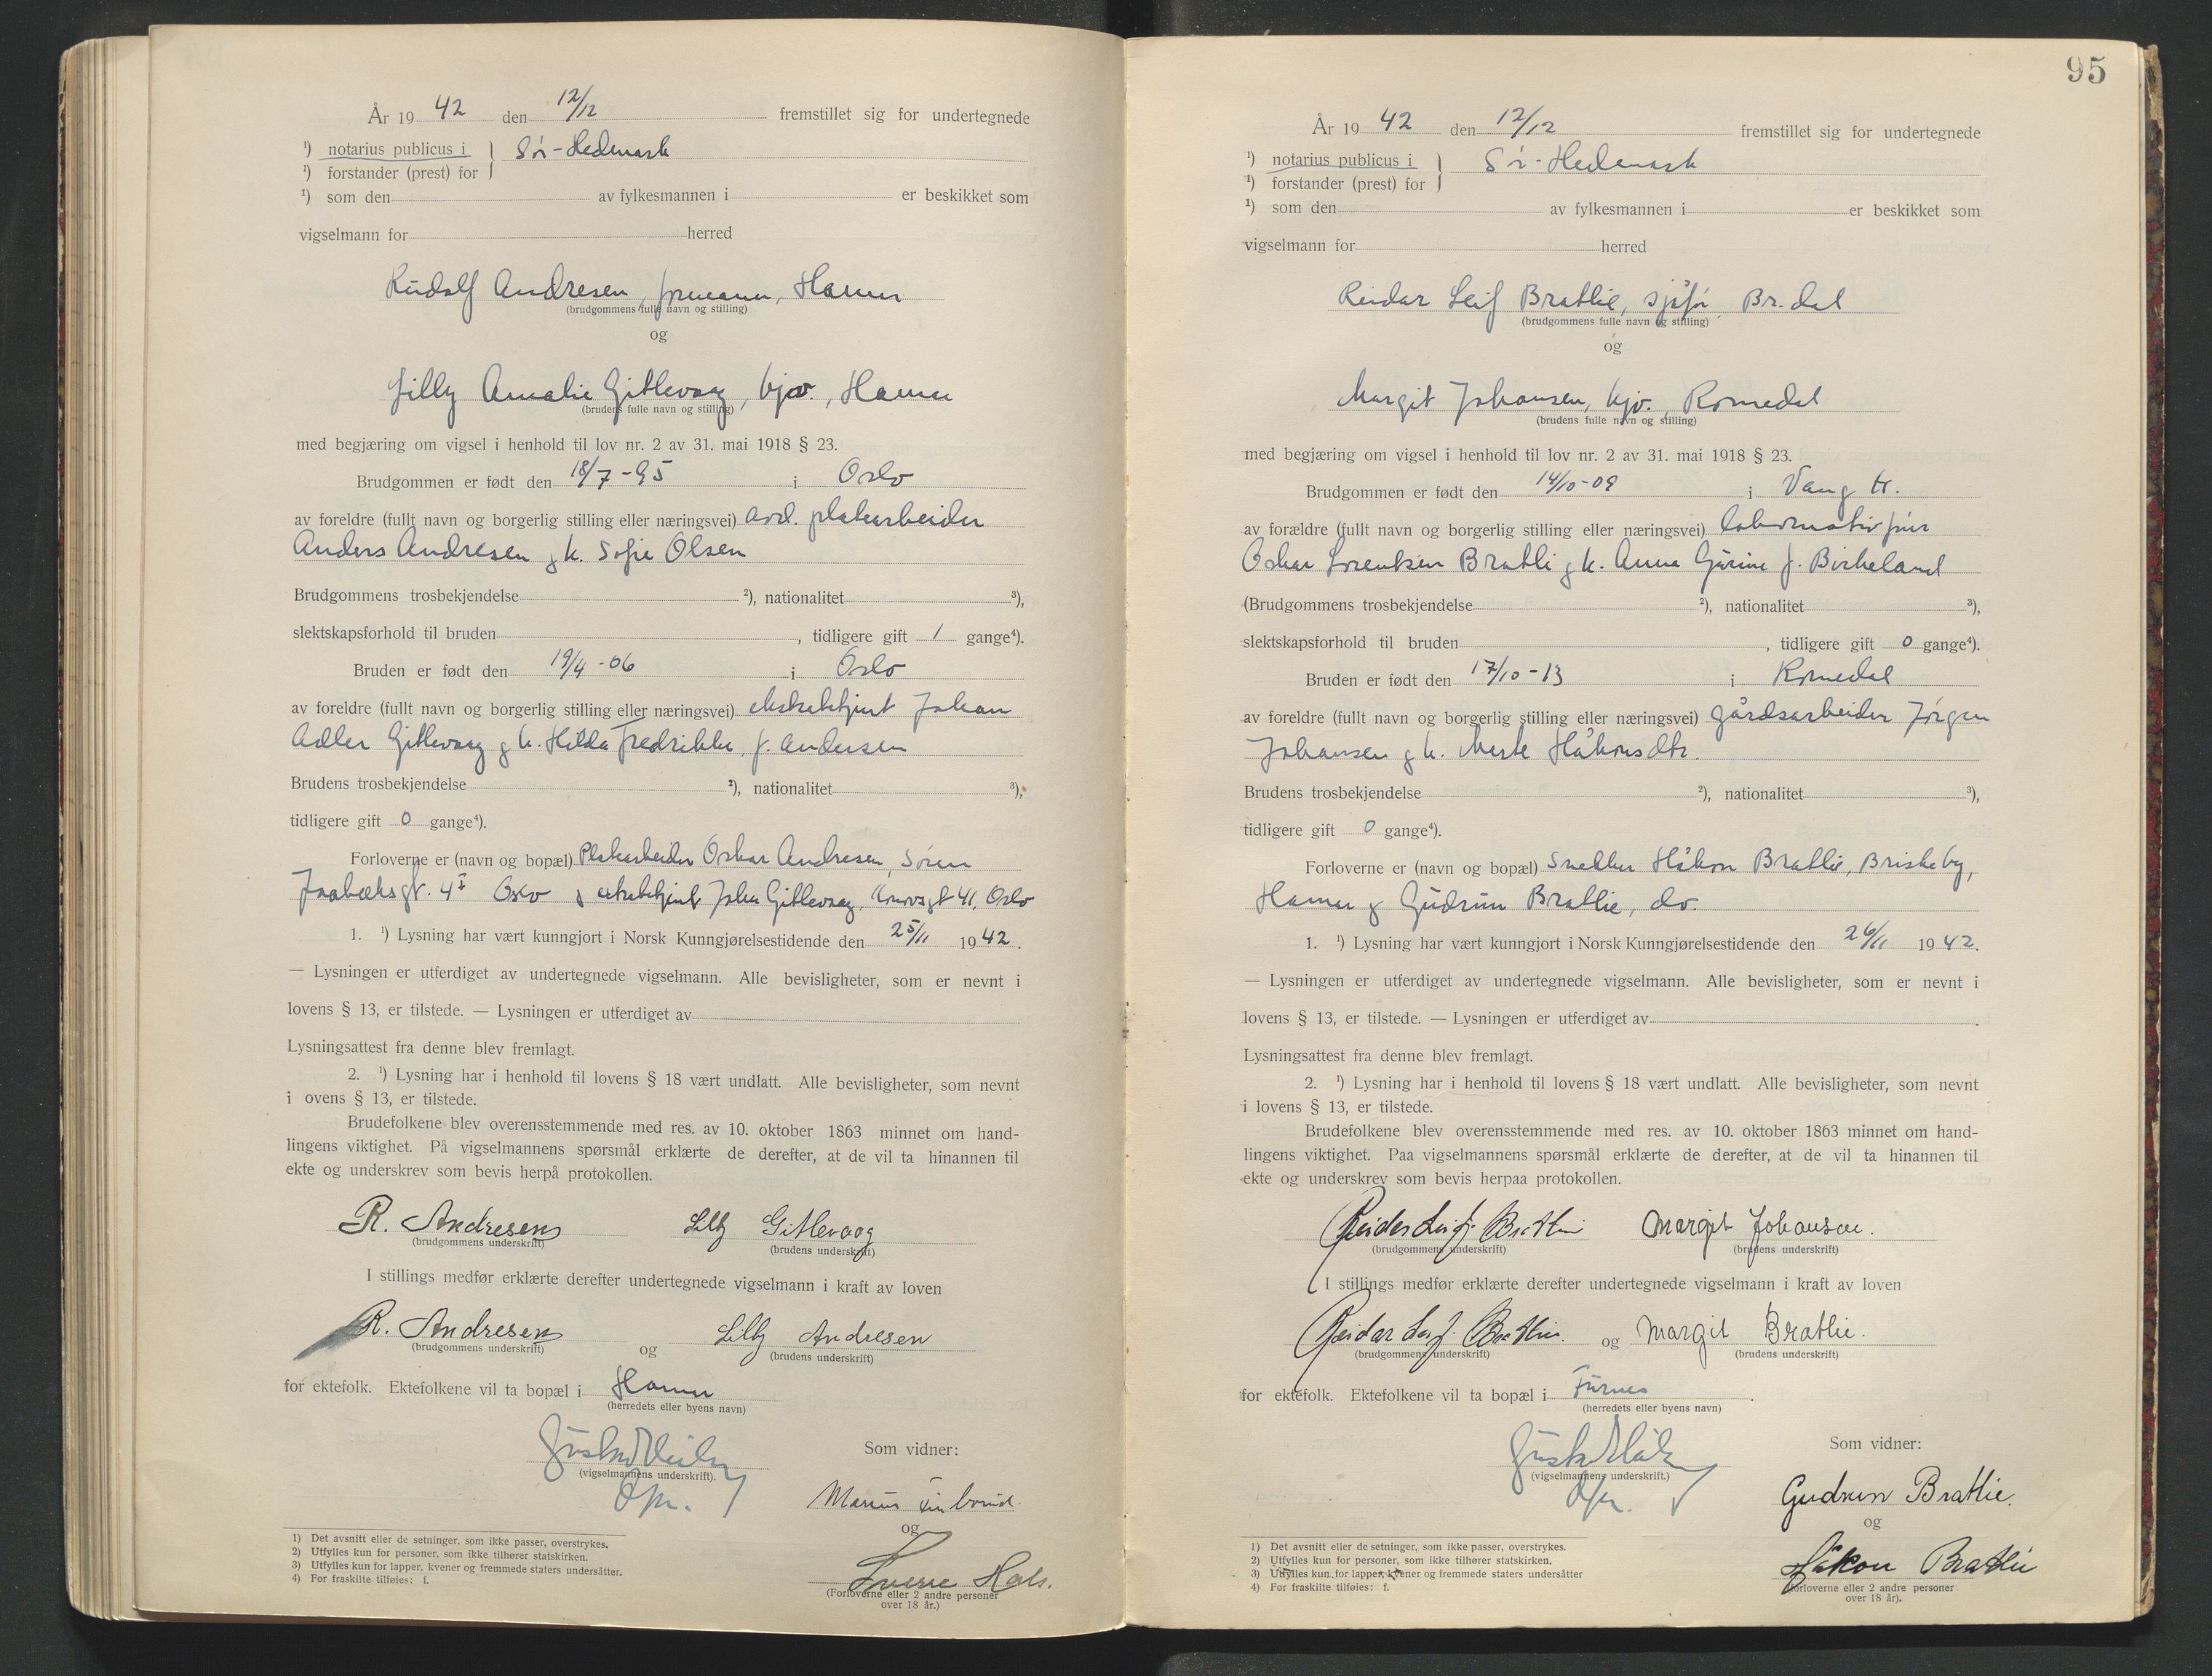 År 19 42 den 12/12 fremstillet sig for undertegnede
¹) notarius publicus i } Sør-Hedmark
¹) forstander (prest) for
¹) som den av fylkesmannen i er beskikket som
vigselmann for herred
Rudolf Andresen, formann, Hamar
(brudgommens fulle navn og stilling)
og
Lilly Amalie Gitlevaag, hjv., Hamar
(brudens fulle navn og stilling)
med begjæring om vigsel i henhold til lov nr. 2 av 31. mai 1918 § 23.
Brudgommen er født den 18/7 -95 i Oslo
av foreldre (fullt navn og borgerlig stilling eller næringsvei) avd. platearbeider
Anders Andresen g h. Sofie Olsen
Brudgommens trosbekjendelse ²), nationalitet ³),
slektskapsforhold til bruden , tidligere gift 1 gange⁴).
Bruden er født den 19/4 -06 i Oslo
av foreldre (fullt navn og borgerlig stilling eller næringsvei) ekstrabetjent Johan
Adler Gitlevaag g h. Hilda Fredrikke, f. Andersen
Brudens trosbekjendelse ²), nationalitet ³),
tidligere gift 0 gange⁴).
Forloverne er (navn og bopæl) Platearbeider Oskar Andresen, Søren
Jaabæksgt. 4 I Oslo g ekstrabetjent Johan Gitlevaag, gt 41, Oslo
1. ¹) Lysning har vært kunngjort i Norsk Kunngjørelsestidende den 25/11 1942.
— Lysningen er utferdiget av undertegnede vigselmann. Alle bevisligheter, som er nevnt i
lovens § 13, er tilstede. — Lysningen er utferdiget av
Lysningsattest fra denne blev fremlagt.
2. ¹) Lysning har i henhold til lovens § 18 vært undlatt. Alle bevisligheter, som nevnt
i ovens § 13, er tilstede.
Brudefolkene blev overensstemmende med res. av 10. oktober 1863 minnet om hand-
lingens viktighet. På vigselmannens spørsmål erklærte de derefter, at de vil ta hinannen til
ekte og underskrev som bevis herpå protokollen.
R. Andresen Lilly Gitlevaag
(brudgommens underskrift) (brudens underskrift)
I stillings medfør erklærte derefter undertegnede vigselmann i kraft av loven
R. Andresen og Lilly Andresen
(brudgommens underskrift) (brudens underskrift)
for ektefolk. Ektefolkene vil ta bopæl i Hamar
(herredets eller byens navn)
Som vidner:
(vigselmannens underskrift).
Marius
og
Sverre
(Forloverne eller 2 andre personer
over 18 år.)
1) Det avsnitt eller de setninger, som ikke passer, overstrykes.
2) Utfylles kun for personer, som ikke tilhører statskirken.
3) Utfylles kun for lapper, kvener og fremmede staters undersåtter.
4) For fraskilte tilføies: f.
95
År 19 42 den 12/12 fremstillet sig for undertegnede
¹) notarius publicus i } Sør-Hedmark
¹) forstander (prest) for
¹) som den av fylkesmannen i er beskikket som
vigselmann for herred
Reidar Leif Bratlie, sjåfør, Br.dal
(brudgommens fulle navn og stilling)
og
Margit Johansen, hjv., Romedal
(brudens fulle navn og stilling)
med begjæring om vigsel i henhold til lov nr. 2 av 31. mai 1918 § 23.
Brudgommen er født den 14/10-09 i Vang H.
av forældre (fullt navn og borgerlig stilling eller næringsvei) lokomotivfører
Oskar Lorentsen Bratli g h. Anna Gurine f. Birkeland
(Brudgommens trosbekjendelse ²), nationalitet ³),
slektskapsforhold til bruden , tidligere gift 0 gange⁴).
Bruden er født den 17/10-13 i Romedal
av foreldre (fullt navn og borgerlig stilling eller næringsvei) gårdsarbeider Jørgen
Johansen g h. Marte Håkonsdtr.
Brudens trosbekjendelse ²), nationalitet ³),
tidligere gift 0 gange⁴).
Forloverne er (navn og bopæl) Snekker Håkon Bratlie, Briskeby,
Hamar g Gudrun Bratlie, do.
1. ¹) Lysning har vært kunngjort i Norsk Kunngjørelsestidende den 26/11 1942.
— Lysningen er utferdiget av undertegnede vigselmann. Alle bevisligheter, som er nevnt i
lovens § 13, er tilstede. — Lysningen er utferdiget av
Lysningsattest fra denne blev fremlagt.
2. ¹) Lysning har i henhold til lovens § 18 vært undlatt. Alle bevisligheter, som nevnt
i lovens § 13, er tilstede.
Brudefolkene blev overensstemmende med res. av 10. oktober 1863 minnet om hand-
lingens viktighet. Paa vigselmannens spørsmål erklærte de derefter, at de vil ta hinannen til
ekte og underskrev som bevis herpaa protokollen.
Reidar Leif Bratlie Margit Johansen.
(brudgommens underskrift) (brudens underskrift)
I stillings medfør erklærte derefter undertegnede vigselmann i kraft av loven
Reidar Leif Bratlie. og Margit Bratlie.
(brudgommens underskrift) (brudens underskrift)
for ektefolk. Ektefolkene vil ta bopæl i Furnes
(herredets eller byens navn)
Som vidner:
(vigselmannens underskrift.)
Gudrun Bratlie.
og
Håkon Bratlie
(Forloverne eller 2 andre personer
over 18 år).
1) Det avsnitt eller de setninger, som ikke passer, overstrykes.
2) Utfylles kun for personer, som ikke tilhører statskirken.
3) Utfylles kun for lapper, kvener og fremmede staters undersåtter
4) For fraskilte tilføies: f.